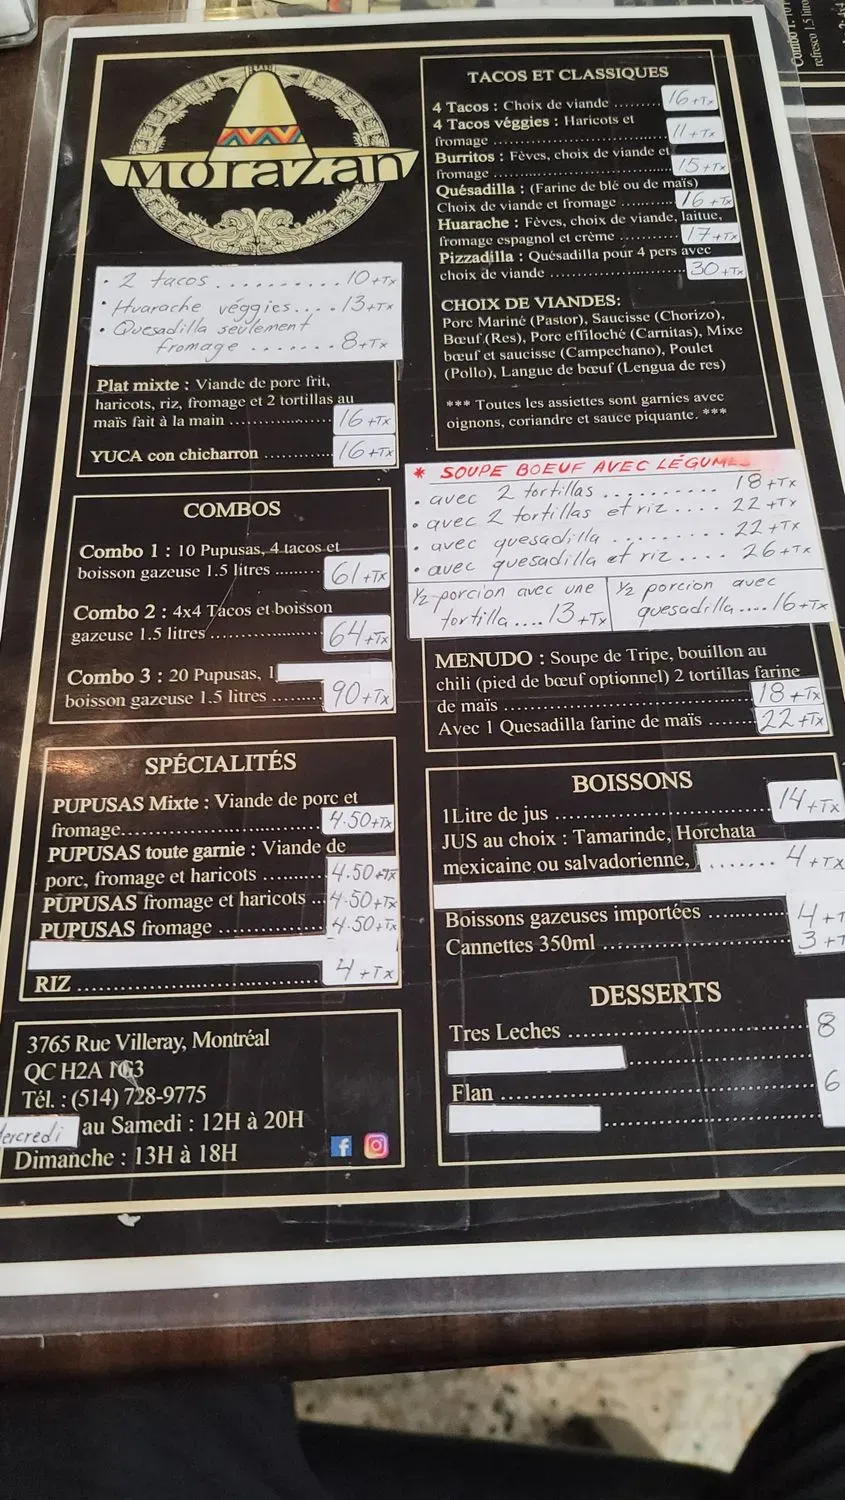 Morazan
• 2 tacos .......... 10+Tx
• Huarache véggies.... 13+Tx
• Quesadilla seulement
fromage ....... 8+Tx
Plat mixte : Viande de porc frit,
haricots, riz, fromage et 2 tortillas au
maïs fait à la main .............. 16+Tx
YUCA con chicharron ............ 16+Tx
COMBOS
Combo 1 : 10 Pupusas, 4 tacos et
boisson gazeuse 1.5 litres ........ 61+Tx
Combo 2 : 4x4 Tacos et boisson
gazeuse 1.5 litres .................... 64+Tx
Combo 3 : 20 Pupusas, 1
boisson gazeuse 1.5 litres ........ 90+Tx
SPÉCIALITÉS
PUPUSAS Mixte : Viande de porc et
fromage.................................. 4.50+Tx
PUPUSAS toute garnie : Viande de
porc, fromage et haricots ........... 4.50+Tx
PUPUSAS fromage et haricots ... 4.50+Tx
PUPUSAS fromage .................. 4.50+Tx
RIZ ........................................ 4+Tx
3765 Rue Villeray, Montréal
QC H2A 1G3
Tél. : (514) 728-9775
Mercredi au Samedi : 12H à 20H
Dimanche : 13H à 18H
TACOS ET CLASSIQUES
4 Tacos : Choix de viande ......... 16+Tx
4 Tacos véggies : Haricots et
fromage .................................. 11+Tx
Burritos : Fèves, choix de viande et
fromage .................................. 15+Tx
Quésadilla : (Farine de blé ou de maïs)
Choix de viande et fromage .......... 16+Tx
Huarache : Fèves, choix de viande, laitue,
fromage espagnol et crème .......... 17+Tx
Pizzadilla : Quésadilla pour 4 pers avec
choix de viande ........................ 30+Tx
CHOIX DE VIANDES:
Porc Mariné (Pastor), Saucisse (Chorizo),
Bœuf (Res), Porc effiloché (Carnitas), Mixe
bœuf et saucisse (Campechano), Poulet
(Pollo), Langue de bœuf (Lengua de res)
*** Toutes les assiettes sont garnies avec
oignons, coriandre et sauce piquante. ***
* SOUPE BOEUF AVEC LÉGUMES
• avec 2 tortillas .......... 18+Tx
• avec 2 tortillas et riz.... 22+Tx
• avec quesadilla .......... 22+Tx
• avec quesadilla et riz .... 26+Tx
½ porcion avec une
tortilla .... 13+Tx
½ porcion avec
quesadilla.... 16+Tx
MENUDO : Soupe de Tripe, bouillon au
chili (pied de bœuf optionnel) 2 tortillas farine
de maïs .................................. 18+Tx
Avec 1 Quesadilla farine de maïs ...... 22+Tx
BOISSONS
1Litre de jus ............................ 14+Tx
JUS au choix : Tamarinde, Horchata
mexicaine ou salvadorienne, ....... 4+Tx
Boissons gazeuses importées ............ 4+T
Cannettes 350ml ........................ 3+T
DESSERTS
Tres Leches .............................. 8
Flan ........................................ 6
Combo 1: 10
refresco 1.5 litro